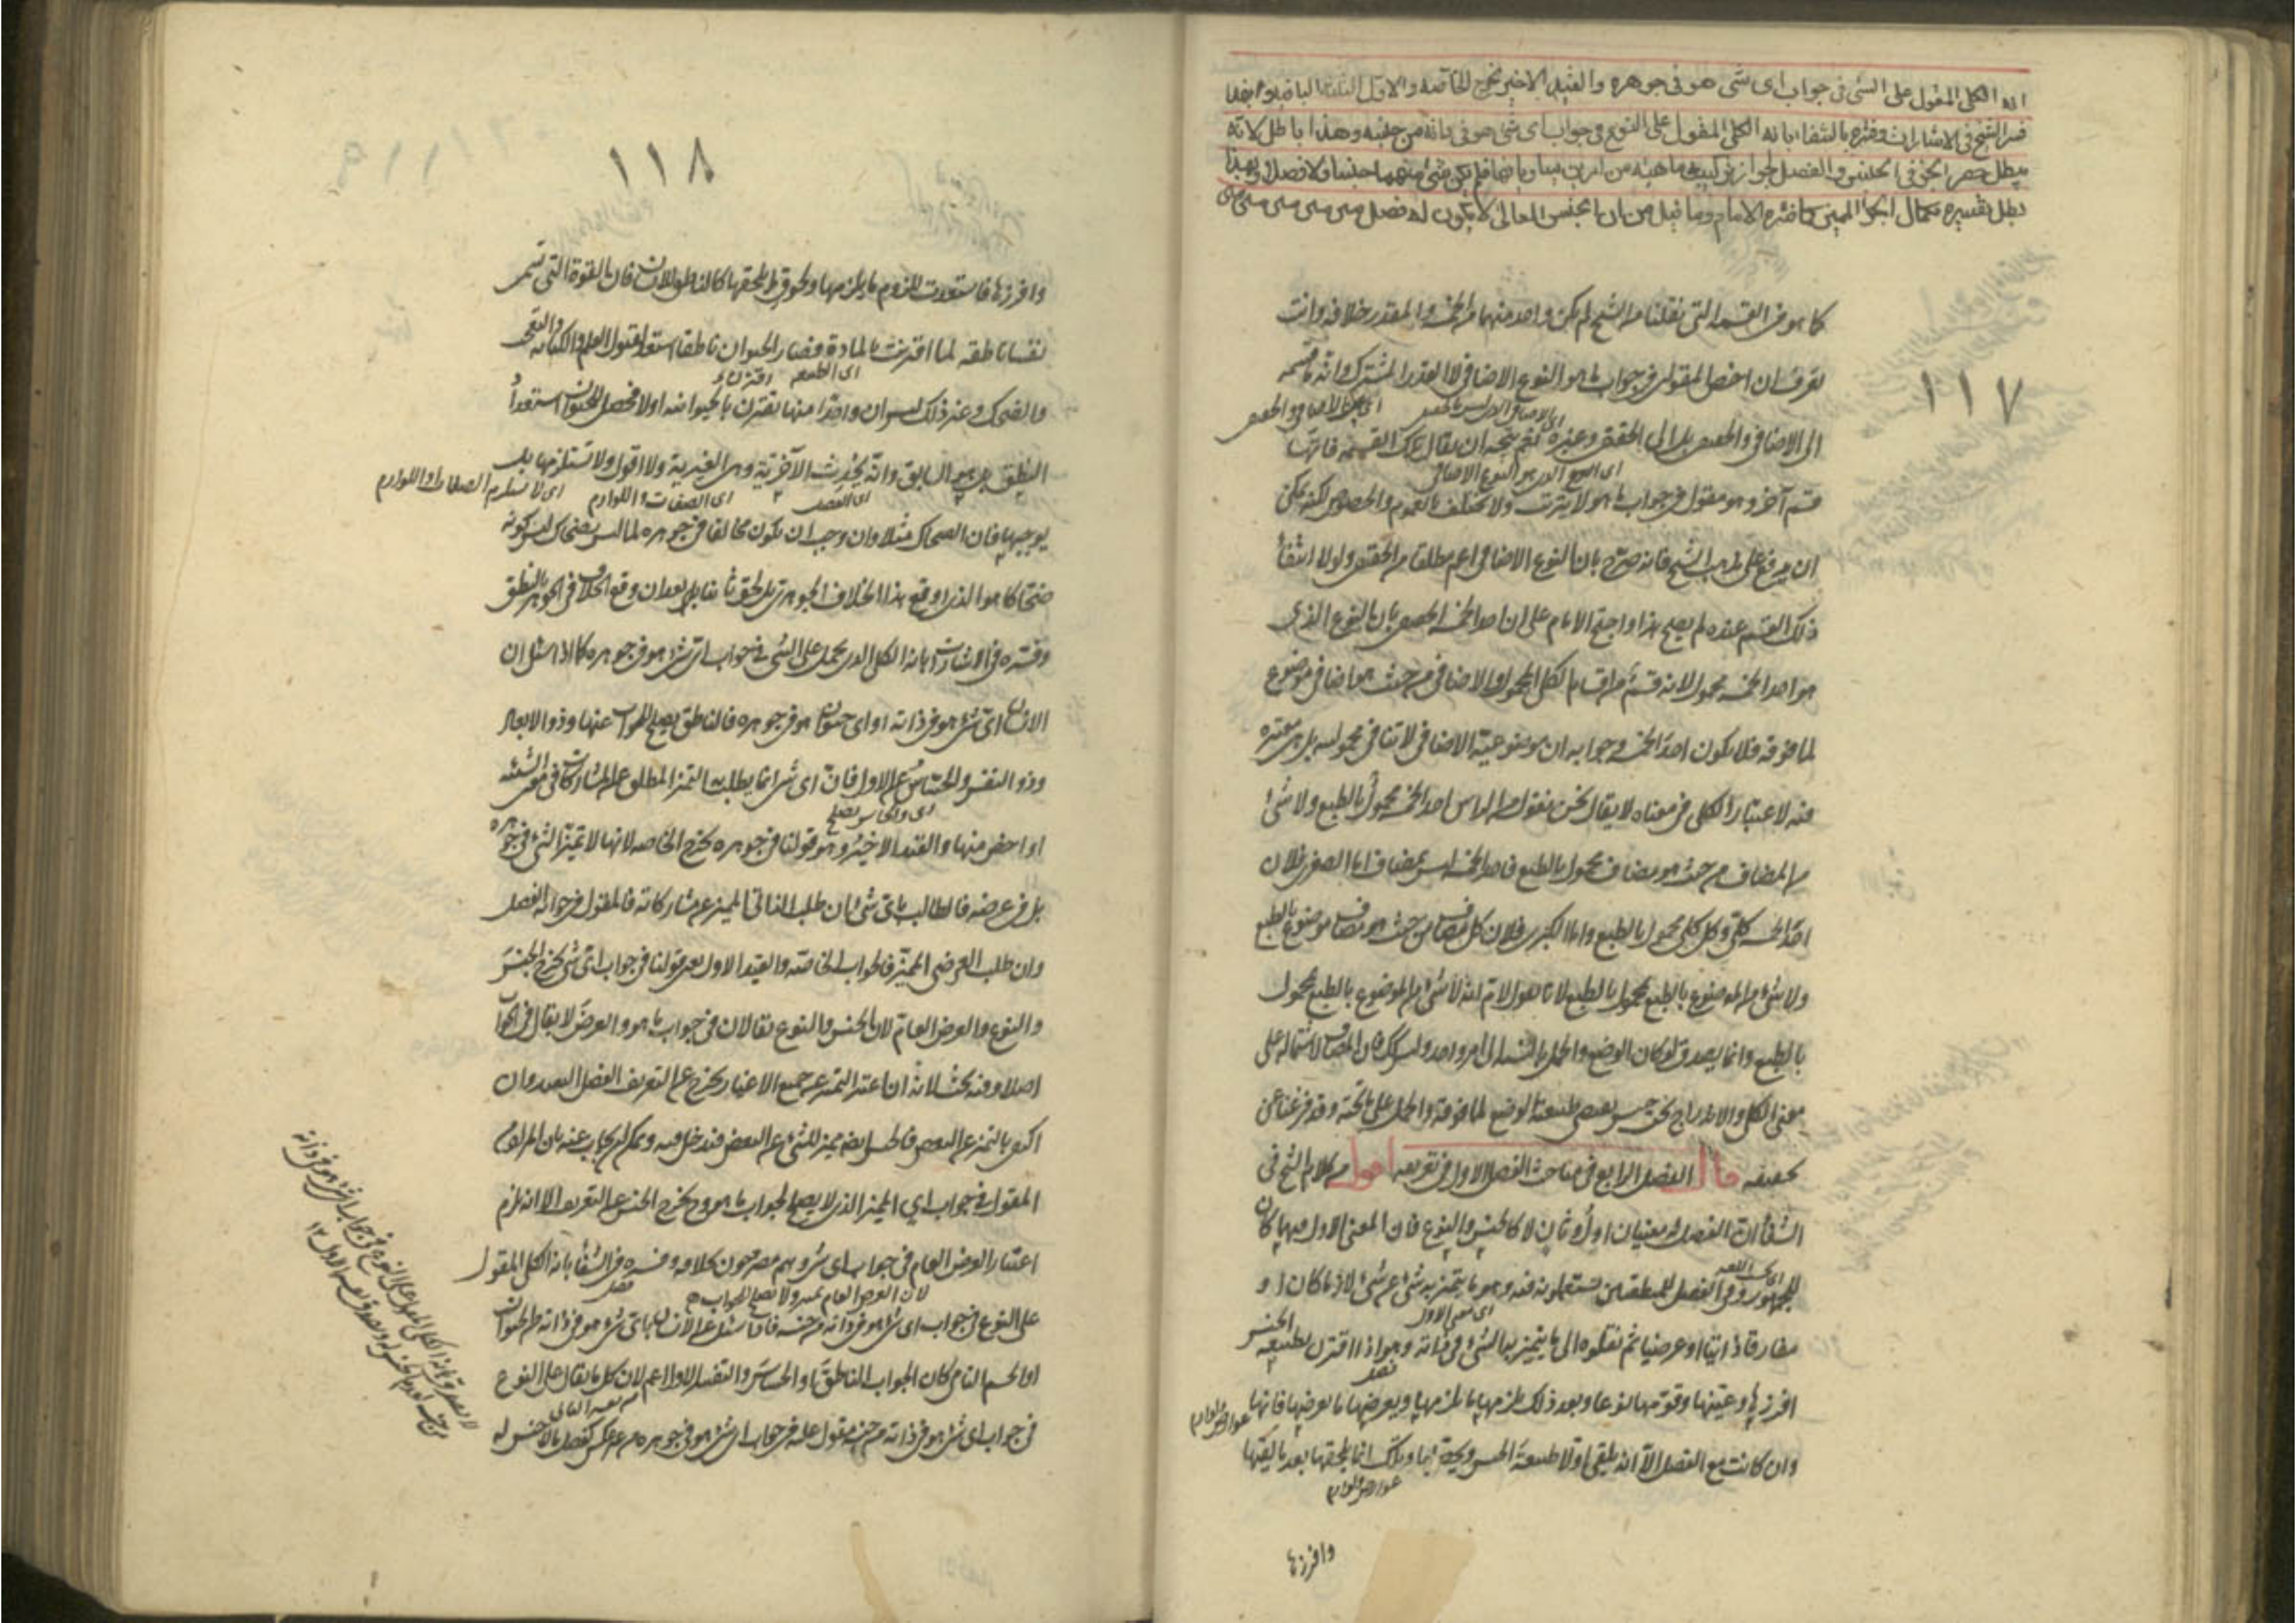 انه الكلى المقول على الشى فى جواب اى شى هو فى جوهره والقيد الاخير يخرج الخاصة والاول الثلثة الباقية وايضا
فسر الشيخ فى الاشارات وفسره بالشفاء بانه الكلى المقول على النوع فى جواب اى شى هو فى ذاته من جنسه وهذا باطل لانه
يبطل حصر الجزء فى الجنس والفصل لجواز تركيب ماهية من امرين يساويانها فلم يكن شئ منهما جنسا ولا فصلا وبهذا
بطل تفسيره بكمال الجزء المميز كما فسره الامام وما قيل من ان الجنس العالى لا يكون له فصل
كما هو فى القسمة التى نقلناه من الشيخ لم يكن واحد منهما من الخمسة والمقدر خلافه وانت
تعرف ان اخص المقولين فى جواب ما هو النوع الاضافى لا القدر المشترك وانه ما قسمه
الى الاضافى والحقيقى بل الى الحقيقى وغيره نعم يتجه ان يقال ترك القسمة فانها
قسم آخر وهو مقول فى جواب ما هو لا يترتب ولا يختلف بالعموم والخصوص لكنه يمكن
ان يدفع على مذهب الشيخ فانه صرح بان النوع الاضافى اعم مطلقا من الحقيقى ولولا انتفاء
ذلك القسم عنده لم يصح هذا واحتج الامام على ان احد الخمسة الحقيقى بان النوع الذى
هو احد الخمسة محمول لانه قسم من اقسام الكلى المحمول والاضافى من حيث هو اضافى موضوع
لما فوقه فلا يكون احد الخمسة وجوابه ان موضوعية الاضافى لا تنافى محموليته بل هى معتبرة
فيه لاعتبار الكلى فى معناه لا يقال نحن نقول من الراس احد الخمسة محمول بالطبع ولا شئ
من المضاف من حيث هو مضاف محمول بالطبع فاحد الخمسة ليس بمضاف اما الصغرى فلان
احد الخمسة كلى وكل كلى محمول بالطبع واما الكبرى فلان كل مضاف من حيث هو مضاف موضوع بالطبع
ولا شئ من الموضوع بالطبع بمحمول بالطبع لانا نقول لا نم انه لا شئ من الموضوع بالطبع محمول
بالطبع وانما يصدق لو كان الوضع والحمل بالنسبة الى امر واحد وليس كذلك فان المضاف لاشتماله على
معنى الكلى والاندراج تحت جنس يقتضى طبيعته الوضع لما فوقه والحمل على ما تحته وقد فرغنا عن
تحقيقه قال الفصل الرابع فى مباحث الفصل الاول فى تعريفه اقول من كلام الشيخ فى
الشفاء ان الفصل له معنيان اول وثان لا كالجنس والنوع فان المعنى الاول فيهما كان
للجمهور وفى الفصل للمنطقيين يستعملونه فيه وهو ما يتميز به شئ عن شئ لازما كان او
مفارقا ذاتيا او عرضيا ثم نقلوه الى ما يتميز به الشئ فى ذاته وهو اذا اقترن بطبيعة الجنس
افرزها وعينها وقومها نوعا وبعد ذلك يلزمها ما يلزمها ويعرضها ما يعرضها فانها
وان كانت مع الفصل الا انه يلقى اولا طبيعة الجنس ويحصلها وتلك انما يلحقها بعد ما لقيها
وافرزها
١١٧
١١٨
وافرزها فاستعدت للزوم ما يلزمها ولحوق ما يلحقها كالناطق للانسان فان القوة التى تسمى
نفسا ناطقة لما اقترنت بالمادة فصار الحيوان ناطقا استعد لقبول العلم والكتابة والتعجب
والضحك وعند ذلك ليس ان واحدا منها يقترن بالحيوانية اولا فحصل للحيوان استعداد
النطق بل هو السابق وانه يحدث الآخرية وهى الغيرية ولا اقول ولا تستلزمها بل
يوجبها فان الضحاك مثلا وان وجب ان يكون مخالفا فى جوهره لما ليس بضحاك ليس كونه
ضحاكا هو الذى اوقع هذا الخلاف الجوهرى بل لحق ثانيا بل بعد ان وقع الخلاف فى الجوهر بالنطق
وفسره فى الاشارات بانه الكلى الذى يحمل على الشئ فى جواب اى شئ هو فى جوهره كما اذا سئل ان
الانسان اى شئ هو فى ذاته او اى حيوان هو فى جوهره فالناطق يصلح للجواب عنهما وذو الابعاد
وذو النفس والحساس عن الاول فان اى شئ انما يطلب به التميز المطلق عن المشاركات فى معنى الشيئية
او اخص منها والقيد الاخير وهو قولنا فى جوهره يخرج الخاصة لانها لا تميز الشئ فى جوهره
بل فى عرضه فالطالب باى شئ ان طلب الذاتى المميز عن مشاركاته فالمقول فى جوابه الفصل
وان طلب العرضى المميز فالجواب الخاصة والقيد الاول يعنى قولنا فى جواب اى شئ يخرج الجنس
والنوع والعرض العام لان الجنس والنوع يقالان فى جواب ما هو والعرض لا يقال فى الجواب
اصلا وفيه بحث لانه ان اعتبر التميز عن جميع الاغيار يخرج عن التعريف الفصل البعيد وان
اكتفى بالتميز عن البعض فالجنس ايضا مميز للشئ عن البعض فيدخل فيه ويمكن ان يجاب عنه بان المراد من
المقول فى جواب اى المميز الذى لا يصلح لجواب ما هو وح يخرج الجنس عن التعريف الا انه يلزم
اعتبار العرض العام فى جواب اى شئ وهم مصرحون بخلافه وفسره فى الشفاء بانه الكلى المقول
لان العرض العام مميز ولا يصلح لجواب ما هو
على النوع فى جواب اى شئ هو فى ذاته من جنسه فاذا سئل عن الانسان باى شئ هو فى ذاته من الحيوان
او الجسم النامى كان الجواب الناطق او الحساس والتفسير الاول اعم لان كل ما يقال على النوع
فى جواب اى شئ هو فى ذاته من جنسه مقول عليه فى جواب اى شئ هو فى جوهره من غير عكس كفصل ما لا جنس له